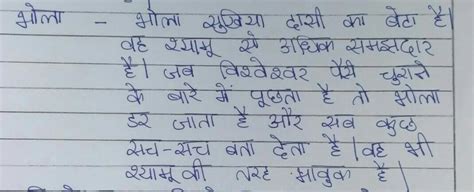 भोला - भोला सुखिया दासी का बेटा है।
वह श्यामू से अधिक समझदार
है। जब विश्वेश्वर पैसे चुराने
के बारे में पूछता है तो भोला
डर जाता है और सब कुछ
सच-सच बता देता है। वह भी
श्यामू की तरह भावुक है।